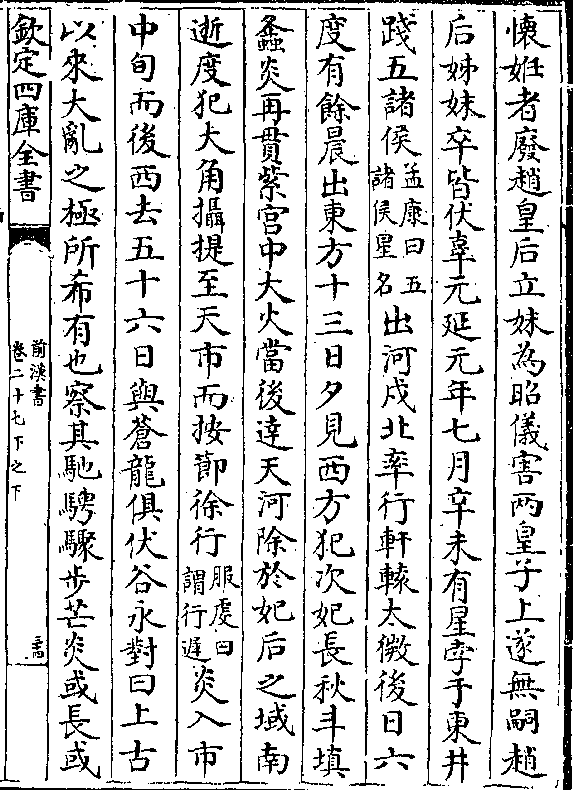 懷姙者廢趙皇后立妹為昭儀害兩皇子上遂無嗣趙
后姊妹卒皆伏辜元延元年七月辛未有星孛于東井
踐五諸侯孟康曰五諸侯星名出河戍北率行軒轅太微後日六
度有餘晨出東方十三日夕見西方犯次妃長秋斗填
螽炎再貫紫宫中大火當後逹天河除於妃后之域南
逝度犯大角攝提至天市而按節徐行服䖍曰謂行遲炎入市
中旬而後西去五十六日與蒼龍俱伏谷永對曰上古
以來大亂之極所希有也察其馳騁驟歩芒炎或長或
欽定四庫全書
前漢書
卷二十七下之下